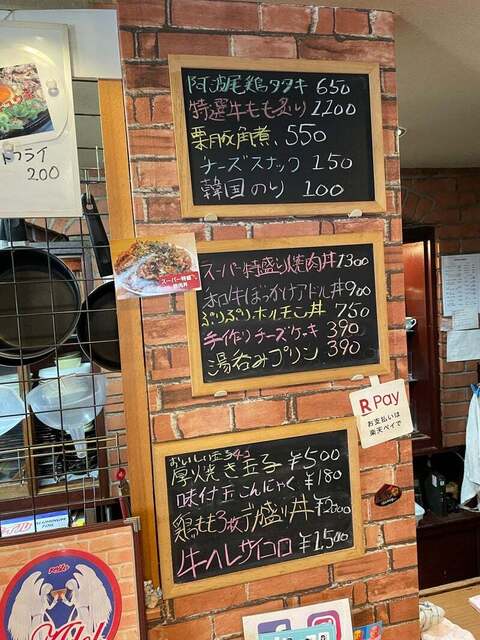 トフライ
200
阿波尾鶏タタキ 650
特選牛もも炙り 1200
栗豚角煮、550
チーズスナック 150
韓国のり 100
スーパー特盛り焼肉丼 1300
スーパー特盛
焼肉丼
和牛ぼっかけアドル丼 900
ぷりぷりホルモン丼 750
手作りチーズケーキ 390
湯呑みプリン 390
R Pay
お支払いは
楽天ペイで
厚焼き玉子 ¥500
味付玉こんにゃく ¥180
鶏もも3枚丁盛り丼 ¥2000
牛ヘレサイコロ ¥1,500